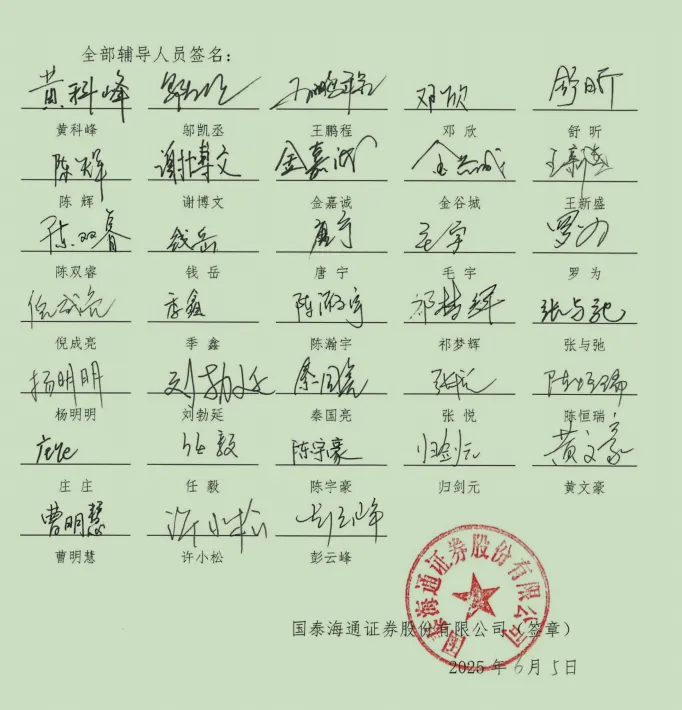 全部辅导人员签名：
黄科峰 邓欣 舒昕
黄科峰 邬凯丞 王鹏程 邓欣 舒昕
陈辉 谢博文 金嘉诚 金谷城 王新盛
陈辉 谢博文 金嘉诚 金谷城 王新盛
陈双睿 钱岳 唐宁 毛宇 罗为
陈双睿 钱岳 唐宁 毛宇 罗为
倪成亮 季鑫 陈瀚宇 祁梦辉 张与弛
倪成亮 季鑫 陈瀚宇 祁梦辉 张与弛
杨明明 刘勃延 秦国亮 张悦 陈恒瑞
杨明明 刘勃延 秦国亮 张悦 陈恒瑞
任毅 陈宇豪 归剑元 黄文豪
庄庄 任毅 陈宇豪 归剑元 黄文豪
曹明慧 许小松 彭云峰
曹明慧 许小松 彭云峰
国泰海通证券股份有限公司
国泰海通证券股份有限公司（签章）
2025年6月5日